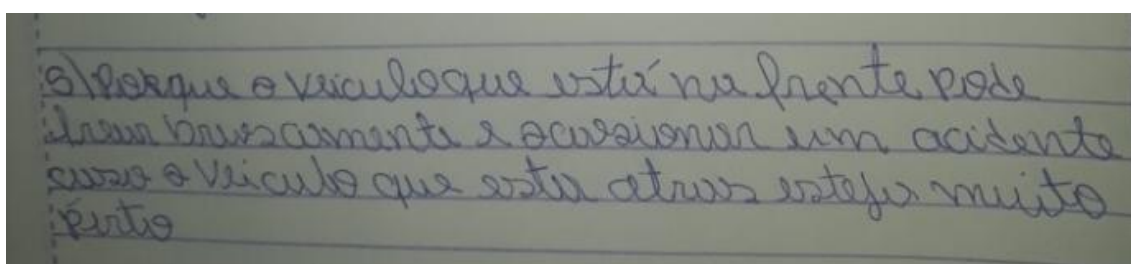 5) Porque o veiculo que está na frente pode
frear bruscamente e ocasionar um acidente
caso o veiculo que esta atras esteja muito
perto